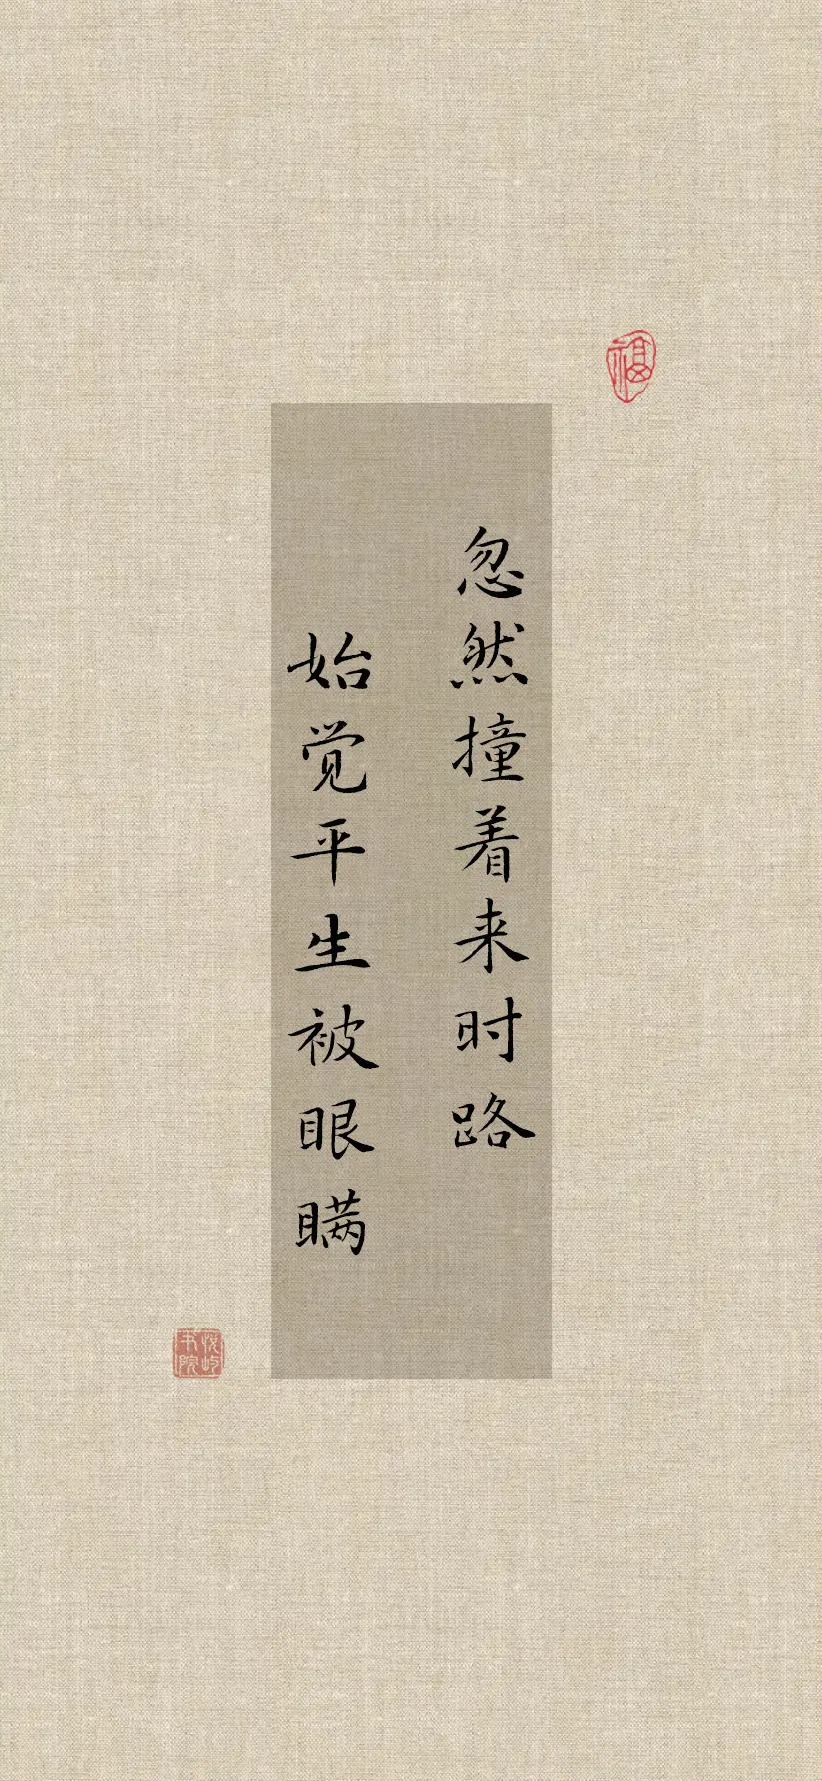 福
忽然撞着来时路
始觉平生被眼瞒